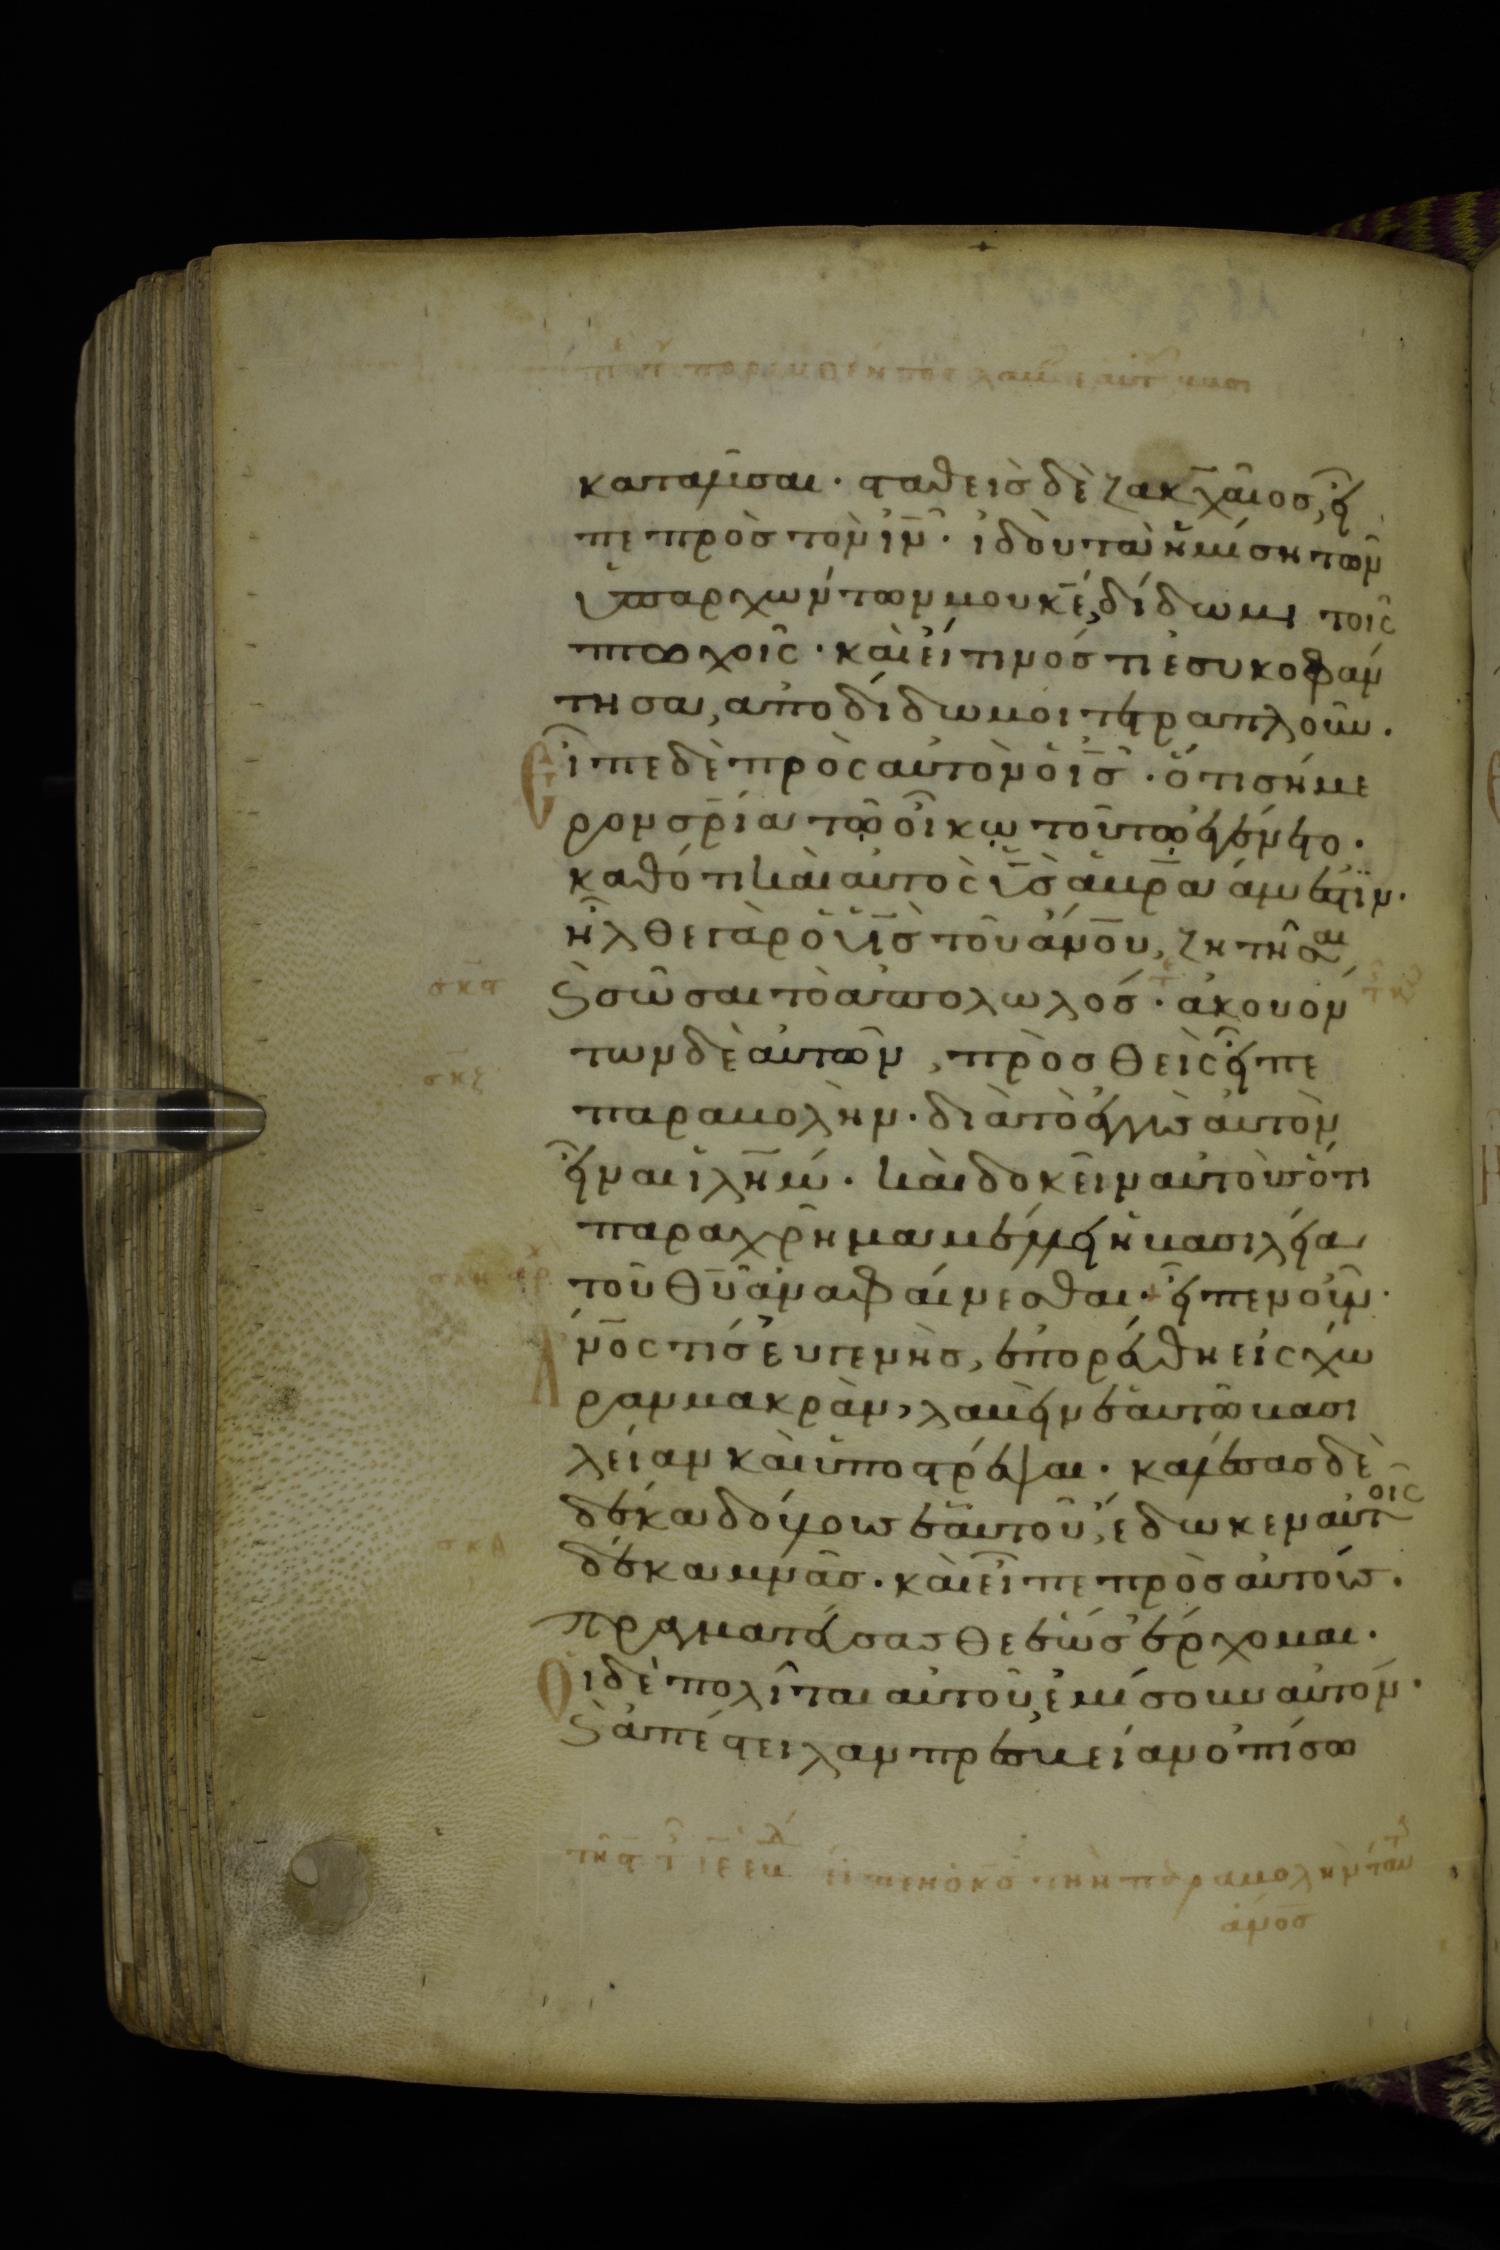 καταλῦσαι · σταθεὶσ δὲ ζακχαῖοσ, εἶ
πε πρὸσ τὸν ι̅ν̅ · ἰδοὺ τὰ ἡμίση τῶν
ὑπαρχώντων μου κ̅ε̅, δίδωμι τοῖς
πτωχοῖς · καὶ εἴ τινόσ τι ἐσυκοφάν
τησα, ἀποδίδωμοι τετραπλοῦν ·
Εἶπε δὲ πρὸς αὐτὸν ὁ ι̅σ̅ · ὅτι σήμε
ρον σ̅ρ̅ία τῶ οἴκω τούτω ἐγένετο ·
καθότι καὶ αὐτὸς υ̅σ̅ ἀβρ̅αάμ ἐστϊν ·
ἦλθε γὰρ ὁ υ̅σ̅ τοῦ α̅ν̅ο̅υ̅, ζητῆσαι
ϗ σῶσαι τὸ ἀπολωλόσ · ἀκουόν
των δὲ αὐτῶν, πρὸσθεὶς εἶπε
παραβολὴν · διὰ τὸ ἐγγὺσ αὐτὸν
εἶναι ἰ̅λ̅η̅μ̅ · καὶ δοκεῖν αὐτοὺσ ὅτι
παραχρῆμα μέλλει ἡ βασιλεία
τοῦ θ̅υ̅ ἀναφαίνεσθαι · εἶπεν οὖν ·
Α̅ν̅ο̅ς τίσ εὐγενὴσ, ἐπορεύθη εἰς χώ
ραν μακρὰν, λαβεῖν ἑαυτῶ βασι
λείαν καὶ ὑποστρέψαι · καλέσασ δὲ
δέκα δούλουσ ἑαυτοῦ, ἔδωκεν αὐτοῖς
δέκα μνᾶσ · καὶ εἶπε πρὸσ αὐτούσ ·
πραγματεύσασθε ἑώσ ἔρχομαι ·
Οἱ δὲ πολῖται αὐτοῦ, ἐμίσουν αὐτόν ·
ϗ ἀπέστειλαν πρεσβείαν ὀπίσω